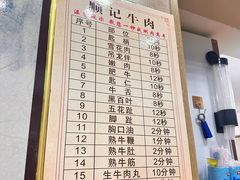 顺记牛肉
序号 部位 时间
1 匙柄 10秒
2 雪花肉 8秒
3 吊龙伴 10秒
4 嫩肉 10秒
6 肥牛 12秒
7 匙仁 8秒
8 黑百叶 12秒
9 五花趾 12秒
10 脚趾 12秒
11 胸口油 2分钟
12 熟牛鞭 1分钟
13 熟牛肚 2分钟
14 熟牛筋 2分钟
15 生牛肉丸 10分钟